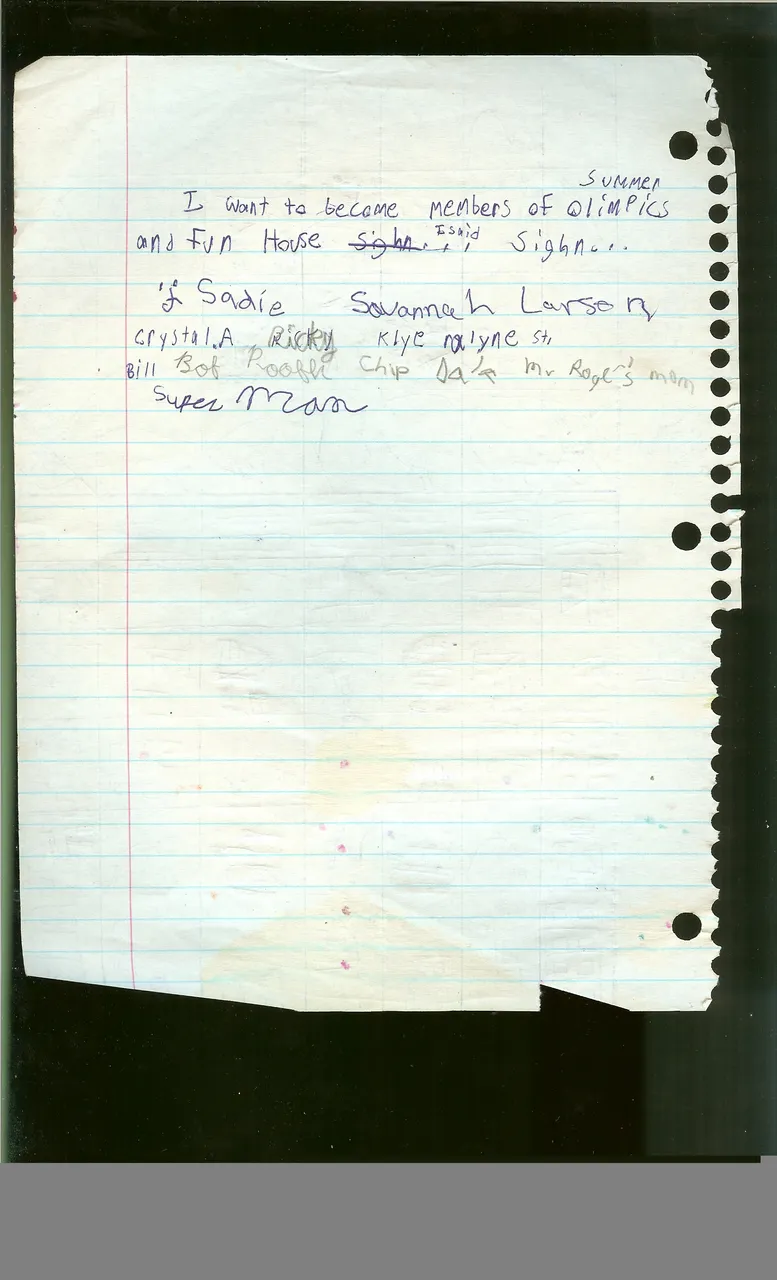 Summer
I want to become members of olimpics
and Fun House Sighn... I said Sighn...
Sadie Savannah Larson
Crystal.A Ricky Klye ralyne St.
Bill Bof Chip Dale Mr Roge's mom
Super Man